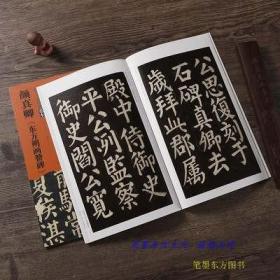 颜真卿
东方朔画赞碑
公思復刻于
石碑真卿去
歲拜此郡属
殿中侍御史
平公洌監察
御史閻公寬
笔墨东方图书